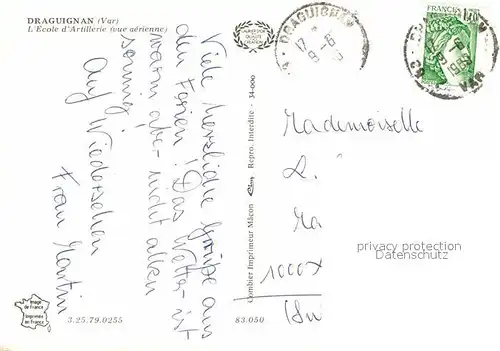 DRAGUIGNAN (Var)
L'Ecole d'Artillerie (vue aérienne)
Viele herzliche Grüße aus
den Ferien! Das Wetter ist
warm aber nicht allen
sonnig.
Auf Wiedersehen
Frau Martin
3.25.79.0255
Image de France
Imprimée en France
83.050
Combier Imprimeur Mâcon
Cim
Repro. Interdite - 34-000
DRAGUIGNAN
17 H
9-6
FRANCE 1,70
17
9-6
1983
VAR
Mademoiselle
R.
Ma
1000X
privacy protection
Datenschutz